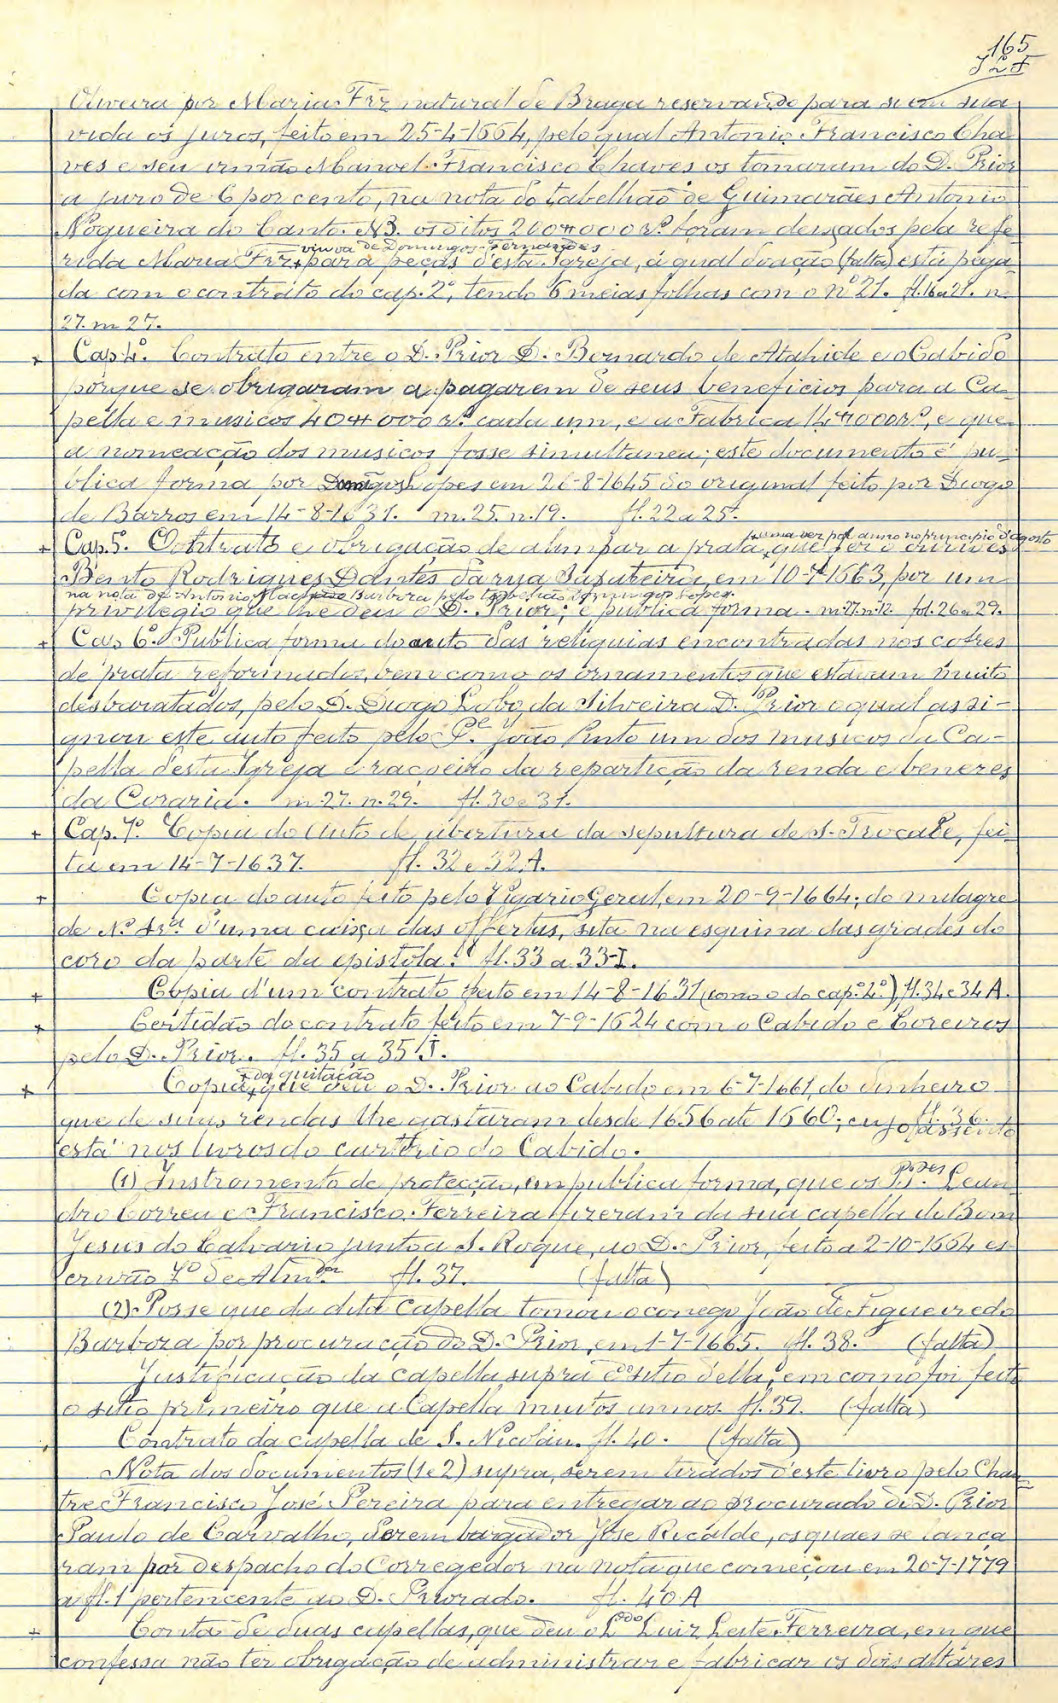 165
Oliveira por Maria Frz natural de Braga reservando para si em sua
vida os juros, feito em 25-4-1664, pelo qual Antonio Francisco Cha
ves e seu irmão Manoel Francisco Chaves os tomaram do D. Prior
a juro de 6 por cento, na nota do tabelhão de Guimarães Antonio
Nogueira do Canto. NB. os ditos 200#000 rs. foram deixados pela refe-
viuva de Domingos Fernandes
rida Maria Frz para peças d'esta Igreja, á qual doação (falta) está pega-
da com o contrato do cap. 2º, tendo 6 meias folhas com o nº 21. fl. 16 a 21. n.
27. m 27.
+ Cap. 4º. Contrato entre o D. Prior D. Bernardo de Atahide e o Cabido
porque se obrigaram a pagarem de seus beneficios para a Ca-
pella e musicos 40#000 rs. cada um, e a Fabrica 14#000 rs., e que
a nomeação dos musicos fosse simultanea; este documento é pu-
blica forma por Domingos Lopes em 26-8-1645 do original feito por Diogo
de Barros em 14-8-1631. m. 25. n. 19. fl. 22 a 25.
uma vez por anno no principio d'Agosto
+ Cap. 5º. Contrato e obrigação de alimpar a prata, que fez o ourives
Bento Rodrigues Dantes da rua Sapateira, em 10-7-1663, por um
na nota de Antonio Machado Barboza pelo tabelião Domingos Lopes
privilegio que lhe deu o D. Prior; é publica forma. m. 27. n. 12. fol. 26 a 29.
+ Cap. 6º. Publica forma do auto das reliquias encontradas nos cofres
de prata reformados, bem como os ornamentos que estavam muito
desbaratados, pelo D. Diogo Lobo da Silveira D. Prior o qual assi-
gnou este auto feito pelo Pe. João Pinto um dos musicos da Ca-
pella d'esta Igreja e raçoeiro da repartição da renda e benezes
da Coraria. m. 27. n. 29. fl. 30 e 31.
+ Cap. 7º. Copia do Auto de abertura da sepultura de S. Trocate, fei-
ta em 14-7-1637. fl. 32 e 32A.
+ Copia do auto feito pelo Vigario Geral, em 20-9-1664, do milagre
de Nª Srª d'uma caixa das offertas, sita na esquina das grades do
coro da parte da epistola. fl. 33 a 33-I.
+ Copia d'um contrato feito em 14-8-1631 (como o do capº 4º), fl. 34 e 34 A.
+ Certidão do contrato feito em 7-9-1624 com o Cabido e Coreiros
pelo D. Prior. fl. 35 a 35 I.
da quitação
+ Copia que deu o D. Prior ao Cabido em 6-7-1661, do dinheiro
que de suas rendas lhe gastaram desde 1656 até 1660; cujo assento fl. 36.
está nos livros do cartorio do Cabido.
(1) Instromento de protecção, em publica forma, que os P.des Lean-
dro Correa e Francisco Ferreira fizeram da sua capella do Bom
Jesus do Calvario junto a S. Roque, ao D. Prior, feito a 2-10-1664 es-
crivão de Almda. fl. 37. (falta)
(2) Posse que da dita Capella tomou o conego João de Figueiredo
Barboza por procuração do D. Prior, em 1-7-1665. fl. 38. (falta)
Justificação da Capella supra e do sitio d'ella, em como foi feito
o sitio primeiro que a Capella muitos annos. fl. 39. (falta)
Contrato da capella de S. Nicolau. fl. 40. (falta)
Nota dos documentos (1 e 2) supra, serem tirados d'este livro pelo Chan-
tre Francisco José Pereira para entregar ao procurador do D. Prior
Paulo de Carvalho, Dezembargador José Ricalde, os quaes se lança
ram por despacho do Corregedor na nota que começou em 20-7-1779
a fl. 1 pertencente ao D. Priorado. fl. 40 A
+ Conta de duas capellas, que deu o Ldo Luiz Leite Ferreira, em que
confessa não ter obrigação de administrar e fabricar os dois altares